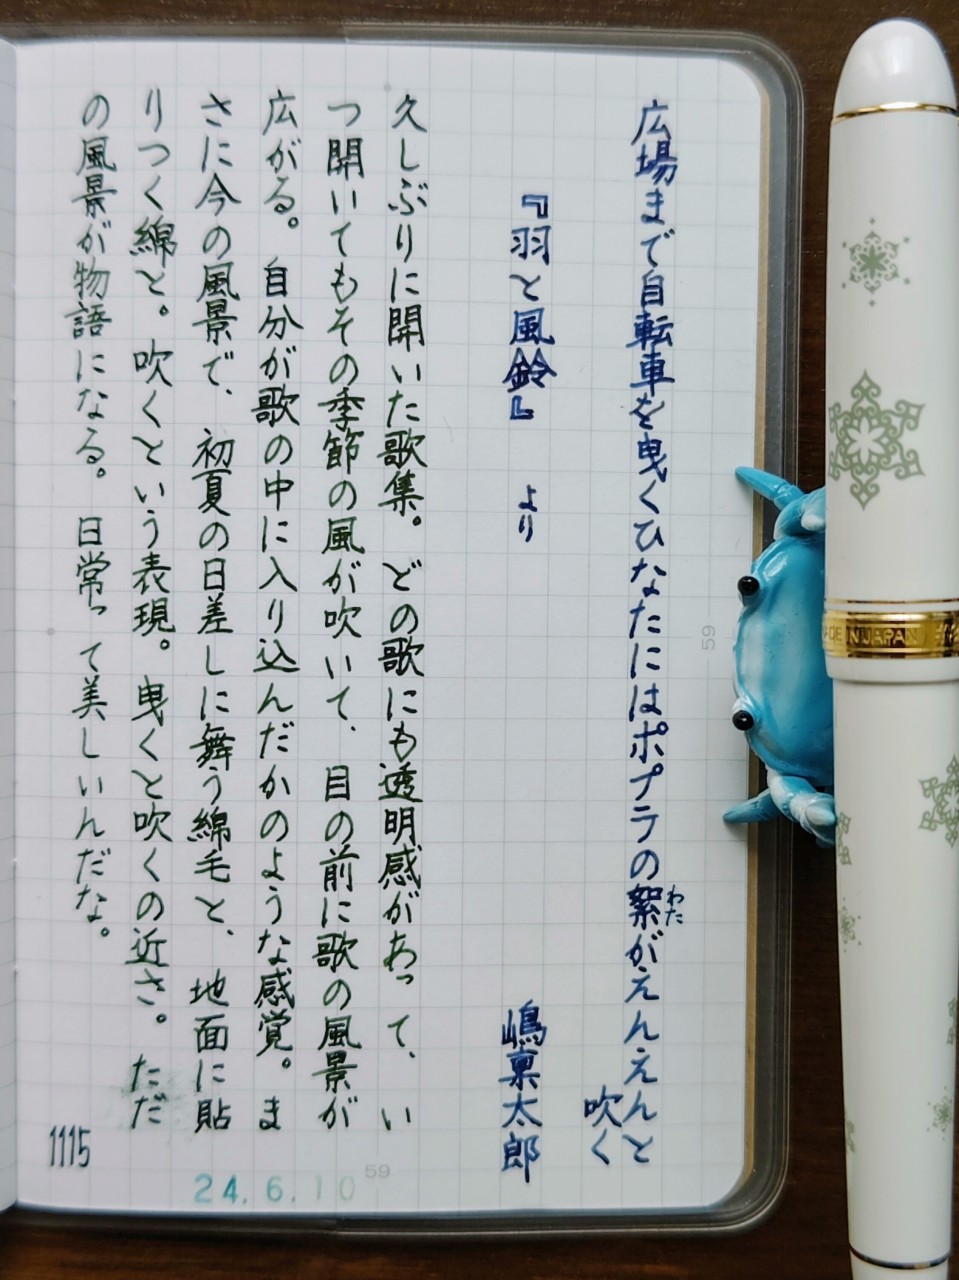 広場まで自転車を曳くひなたにはポプラの絮がえんえんと
わた
吹く
『羽と風鈴』 より
嶋稟太郎
久しぶりに開いた歌集。どの歌にも透明感があって、い
つ開いてもその季節の風が吹いて、目の前に歌の風景が
広がる。自分が歌の中に入り込んだかのような感覚。ま
さに今の風景で、初夏の日差しに舞う綿毛と、地面に貼
りつく綿と。吹くという表現。曳くと吹くの近さ。ただ
の風景が物語になる。日常って美しいんだな。
1115
24.6.10
59
59
JAPAN